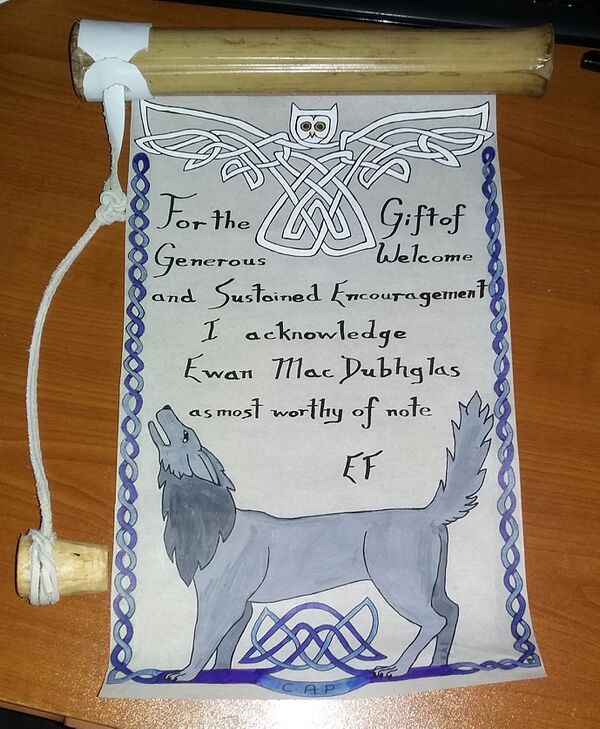 For the Gift of
Generous Welcome
and Sustained Encouragement
I acknowledge
Ewan Mac Dubhglas
as most worthy of note
EF
CAP